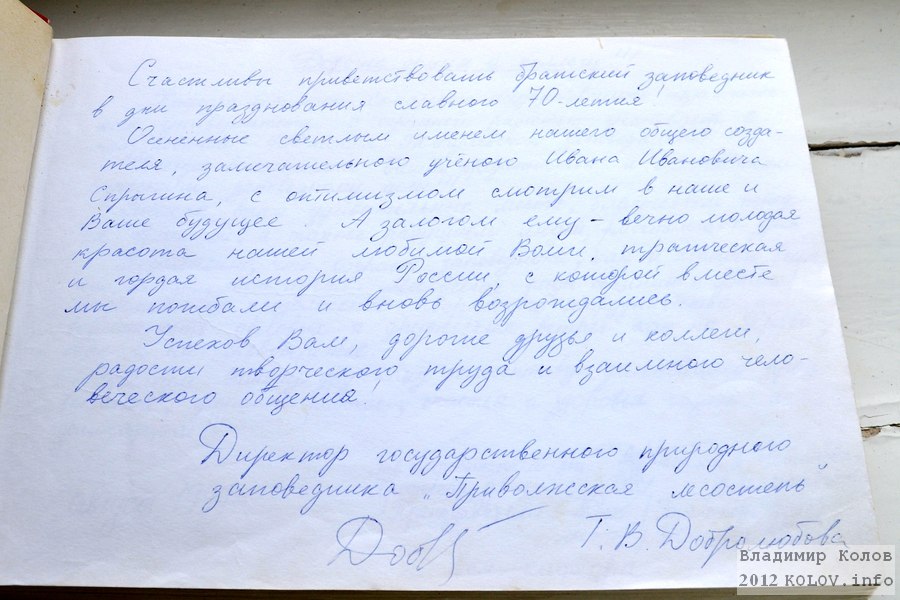 Счастливы приветствовать братский заповедник
в дни празднования славного 70-летия!
Осененные светлым именем нашего общего созда-
теля, замечательного учёного Ивана Ивановича
Спрыгина, с оптимизмом смотрим в наше и
Ваше будущее. А залогом ему – вечно молодая
красота нашей любимой Волги, трагическая
и гордая история России, с которой вместе
мы погибали и вновь возрождались.
Успехов Вам, дорогие друзья и коллеги,
радости творческого труда и взаимного чело-
веческого общения!
Директор государственного природного
заповедника „Приволжская лесостепь"
Т. В. Добролюбова
Владимир Колов
2012 KOLOV.info